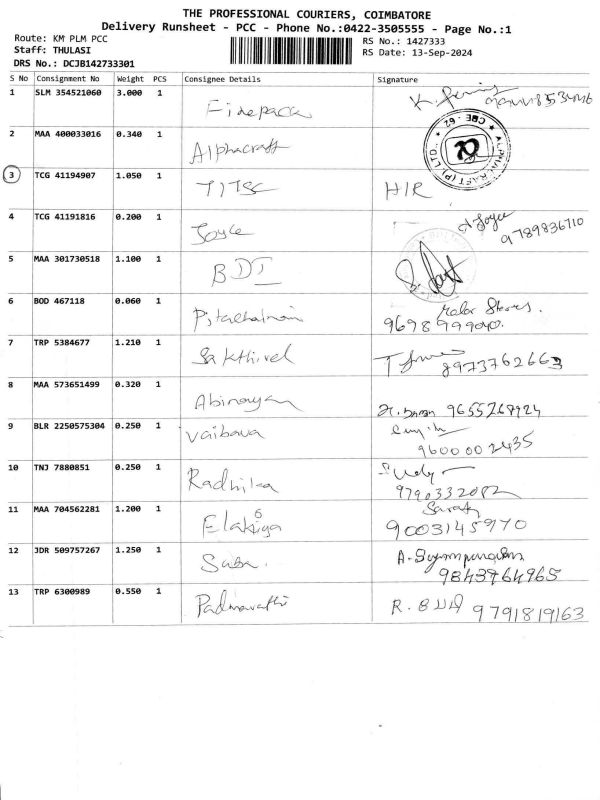 THE PROFESSIONAL COURIERS, COIMBATORE
Delivery Runsheet - PCC - Phone No.:0422-3505555 - Page No.:1
Route: KM PLM PCC
Staff: THULASI
DRS No.: DCJB142733301
RS No.: 1427333
RS Date: 13-Sep-2024
S No Consignment No Weight PCS Consignee Details Signature
1 SLM 354521060 3.000 1
2 MAA 400033016 0.340 1 Alphacraft
3 TCG 41194907 1.050 1 HIR
4 TCG 41191816 0.200 1 Joyce Joyce
9789836710
5 MAA 301730518 1.100 1 BDI
6 BOD 467118 0.060 1 Stores.
9698999040.
7 TRP 5384677 1.210 1 Sakthivel 8973762663
8 MAA 573651499 0.320 1 Abinayan 9655268924
9 BLR 2250575304 0.250 1 Vaibava
9600002435
10 TNJ 7880851 0.250 1 Radhika
9790332082
11 MAA 704562281 1.200 1 Elakiya Sarath
9003145970
12 JDR 509757267 1.250 1 Saba.
9843764965
13 TRP 6300989 0.550 1 Padmavathi R. 9791819163